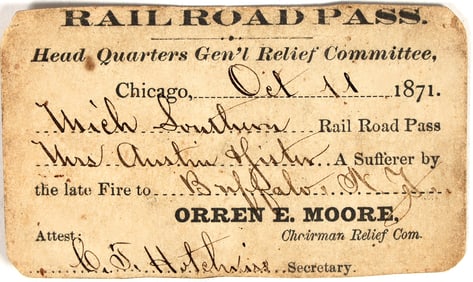 RAIL ROAD PASS.
Head Quarters Gen'l Relief Committee,
Chicago, Oct 11 1871.
Mich Southern Rail Road Pass
Mrs Austin & Sister A Sufferer by
the late Fire to Buffalo N Y
ORREN E. MOORE,
Attest: Chairman Relief Com.
C. T. Hotchkiss Secretary.